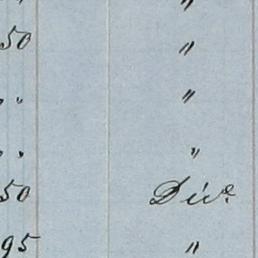 " "
50 "
" " "
" " "
50 Div.
95 "